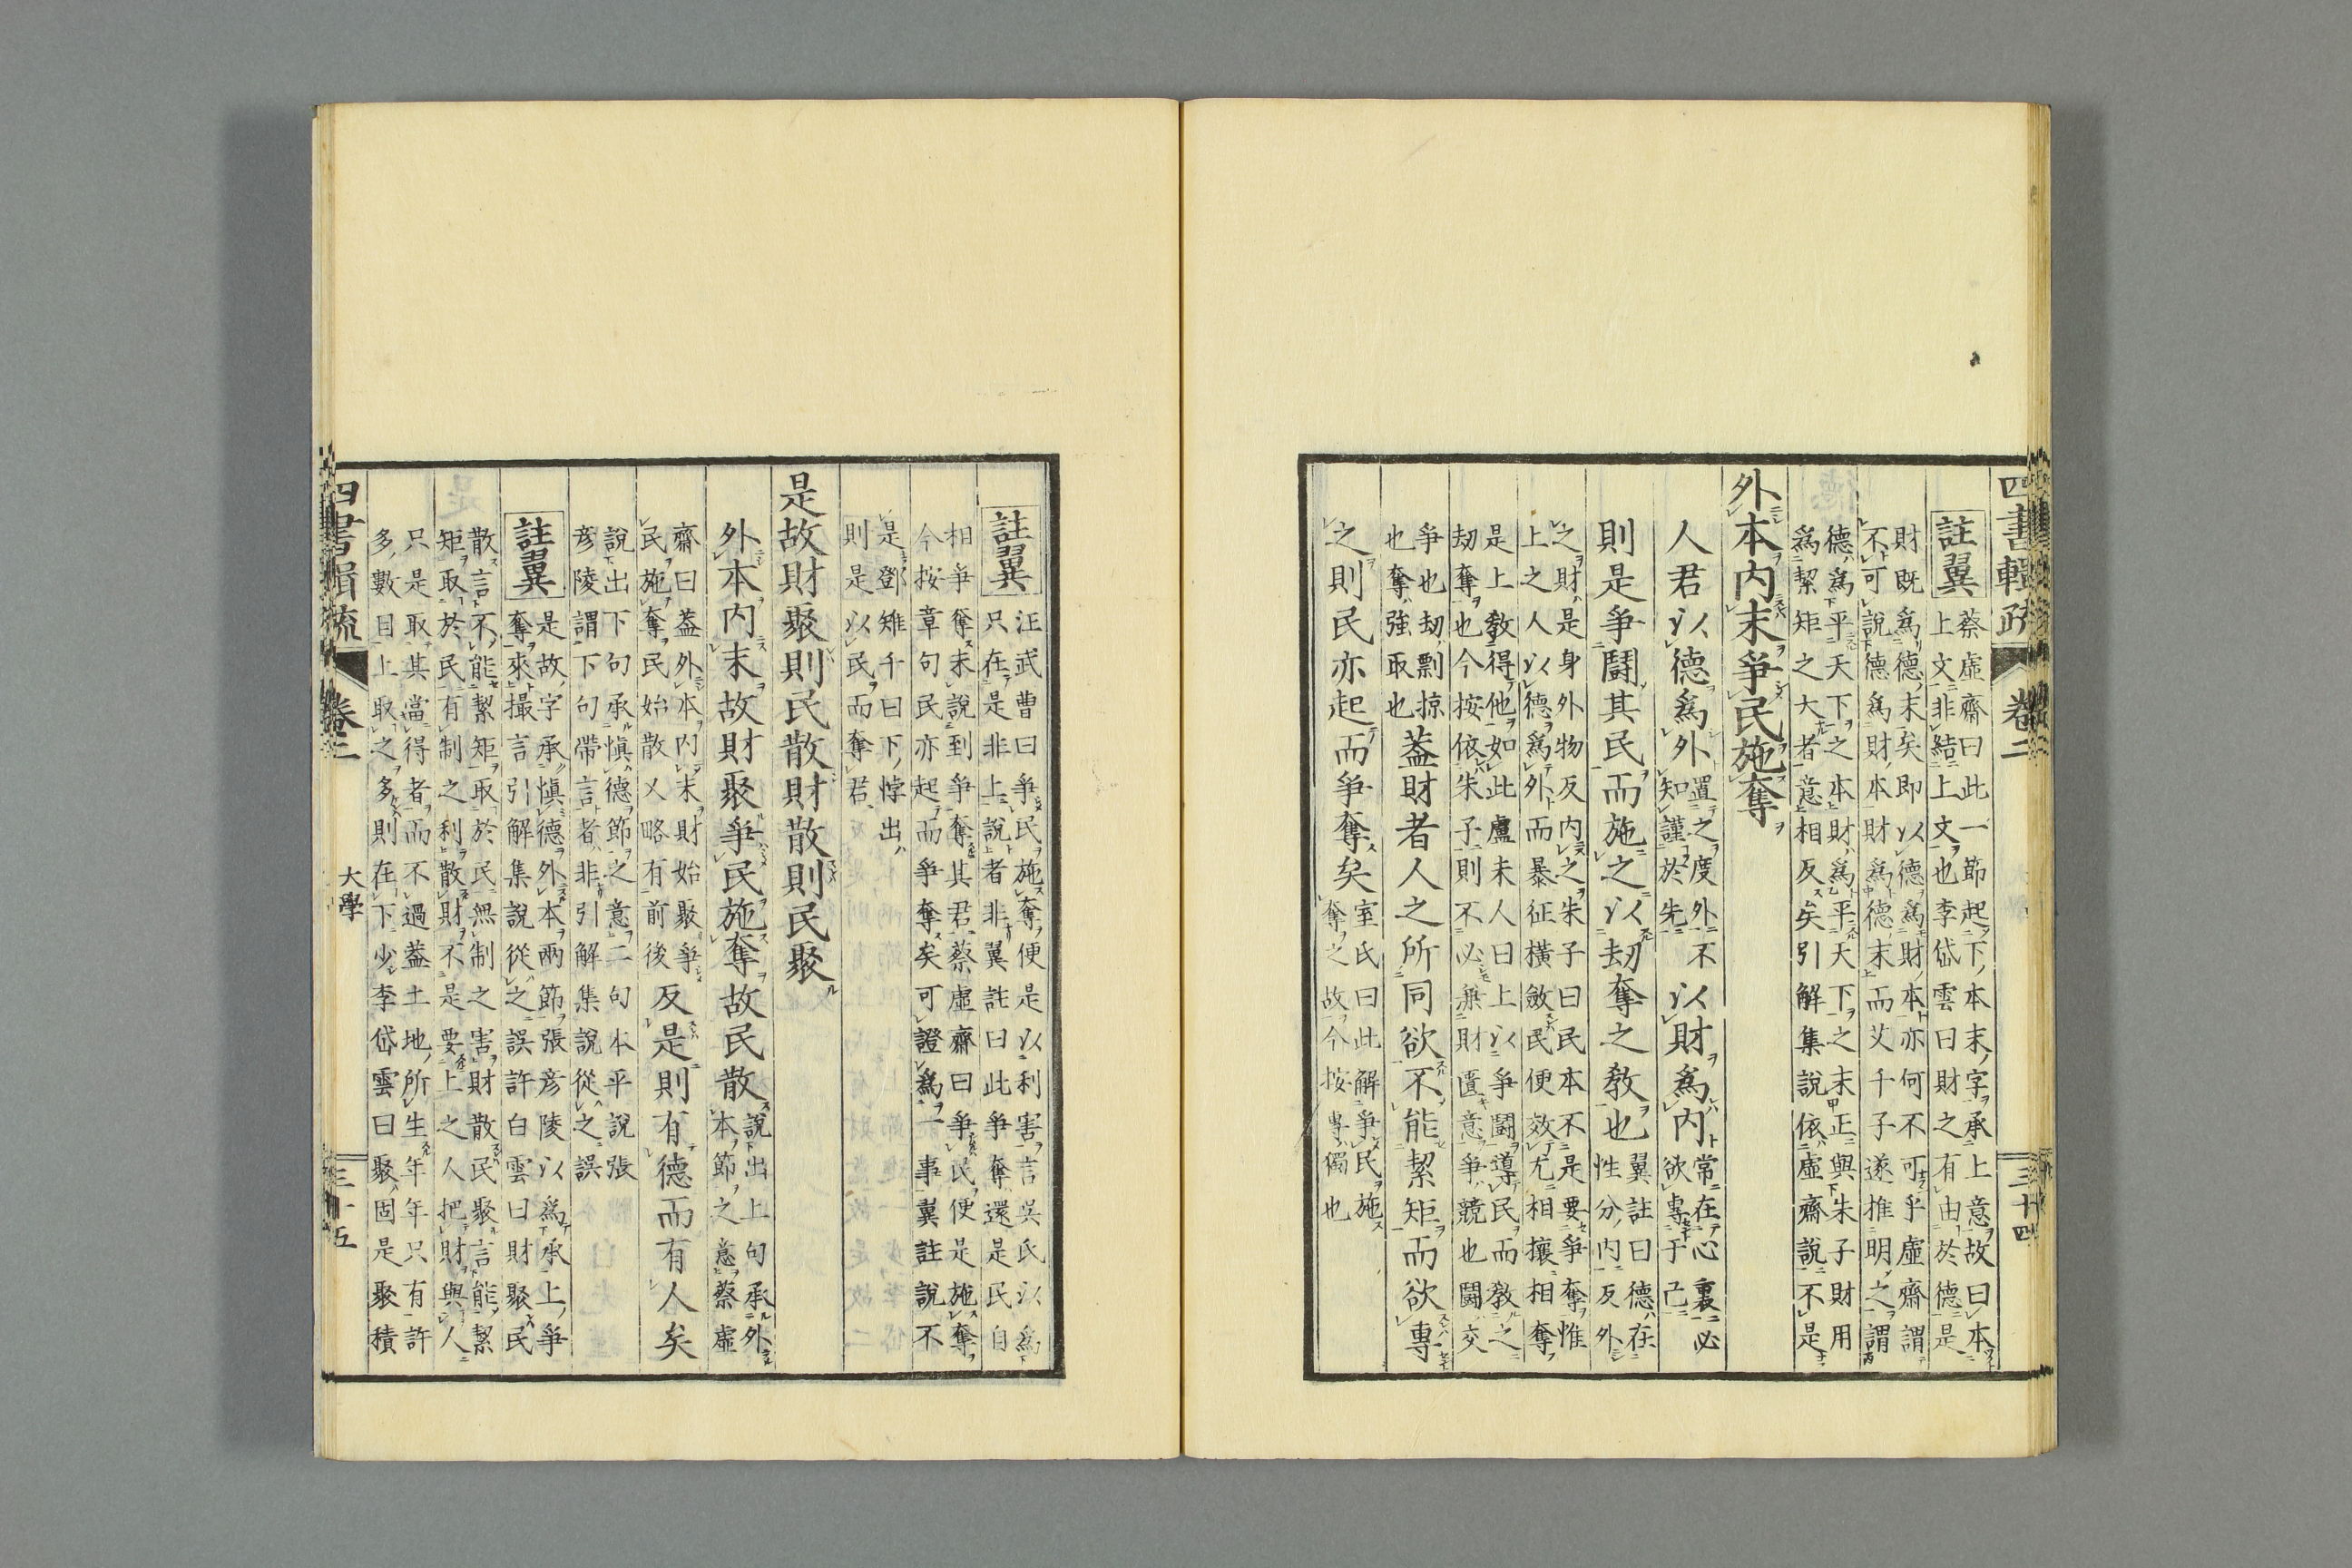 四書輯疏 卷二 三十四
註翼
蔡虛齋曰此一節起下本末字承上意故曰本
上文非結上文也李岱雲曰財之有由於德是
財既爲德末矣即以德爲財本亦何不可乎虛齋謂
不可說德爲財本財爲德末而艾千子遂推明之謂
德爲平天下之本財爲平天下之末正與朱子財用
爲絜矩之大者意相反矣引解集說依虛齋說不是
外本内末爭民施奪
人君以德爲外
置之度外不
知謹於先
以財爲内
常在心裏必
欲專于己
則是爭鬪其民而施之以劫奪之敎也
翼註曰德在
性分内反外
之財是身外物反内之朱子曰民本不是要爭奪惟
上之人以德爲外而暴征橫斂民便效尤相攘相奪
是上敎得他如此盧未人曰上以爭鬪導民而敎之
劫奪也今按依朱子則不必無財匱意爭競也鬪交
爭也劫剽掠
也奪強取也
蓋財者人之所同欲不能絜矩而欲專
之則民亦起而爭奪矣
室氏曰此解爭民施
奪之故今按專獨也
註翼
汪武曹曰爭民施奪便是以利害言吳氏以爲
只在是非上說者非翼註曰此爭奪還是民自
相爭奪未說到爭奪其君蔡虛齋曰爭民便是施奪
今按章句民亦起而爭奪矣可證爲一事翼註說不
是鄧雉千曰下悖出
則是以民而奪君
是故財聚則民散財散則民聚
外本内末故財聚爭民施奪故民散
說出上句承外
本節之意蔡虛
齋曰蓋外本内末財始聚爭
民施奪民始散又略有前後
反是則有德而有人矣
說出下句承愼德節之意二句本平說張
彦陵謂下句帶言者非引解集說從之誤
註翼
是故字承愼德外本兩節張彦陵以爲承上爭
奪來撮言引解集說從之誤許白雲曰財聚民
散言不能絜矩取於民無制之害財散民聚言能絜
矩取於民有制之利散財不是要上之人把財與人
只是取其當得者而不過蓋土地所生年年只有許
多數目上取之多則在下少李岱雲曰聚固是聚積
四書輯疏 卷二 大學 三十五